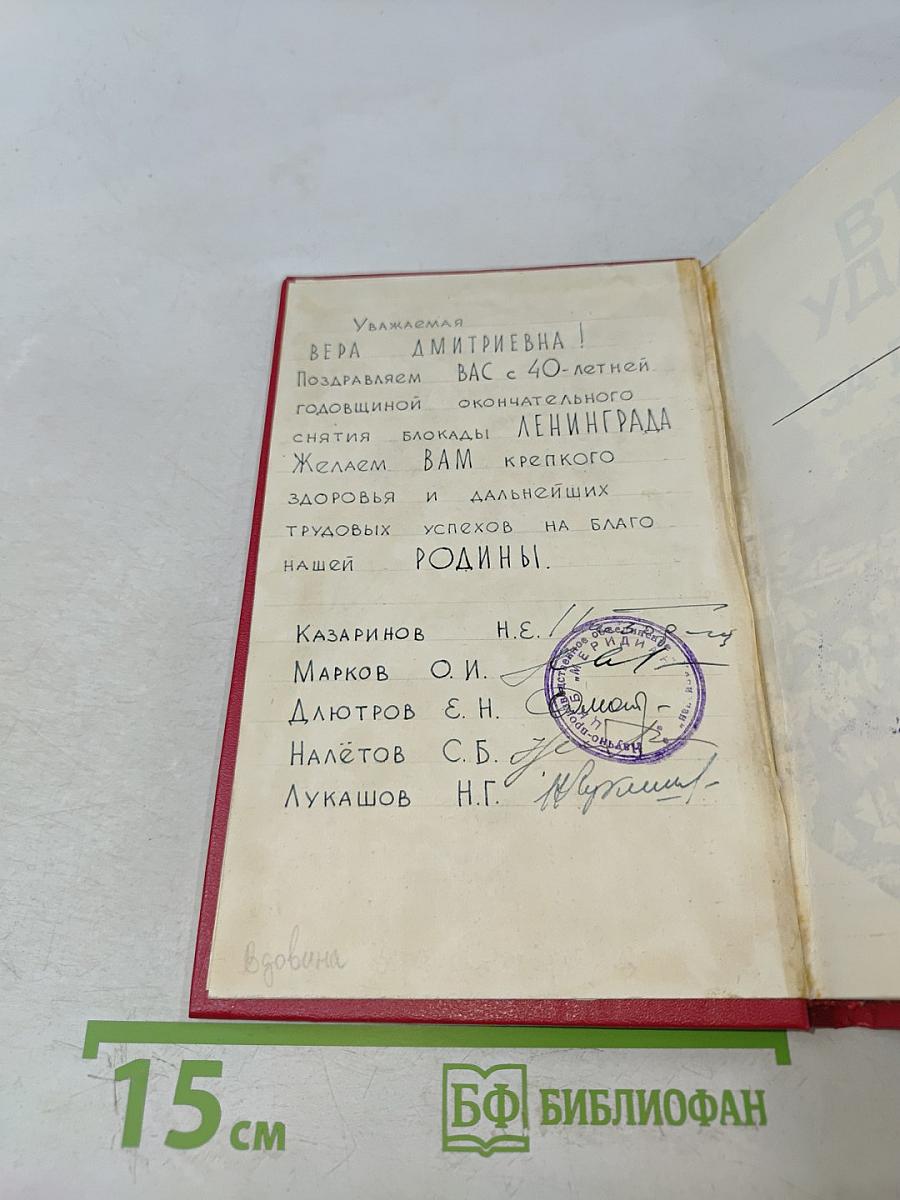 Уважаемая
ВЕРА ДМИТРИЕВНА!
Поздравляем ВАС с 40-летней
годовщиной окончательного
снятия блокады ЛЕНИНГРАДА
Желаем ВАМ крепкого
здоровья и дальнейших
трудовых успехов на благо
нашей РОДИНЫ.
Казаринов Н.Е.
Марков О.И.
Длютров Е.Н.
Налётов С.Б.
Лукашов Н.Г.
Научно-производственное объединение
ЦКБ "МЕРИДИАН"
Вдовина
ВТ
УДА
15 см
БФ БИБЛИОФАН